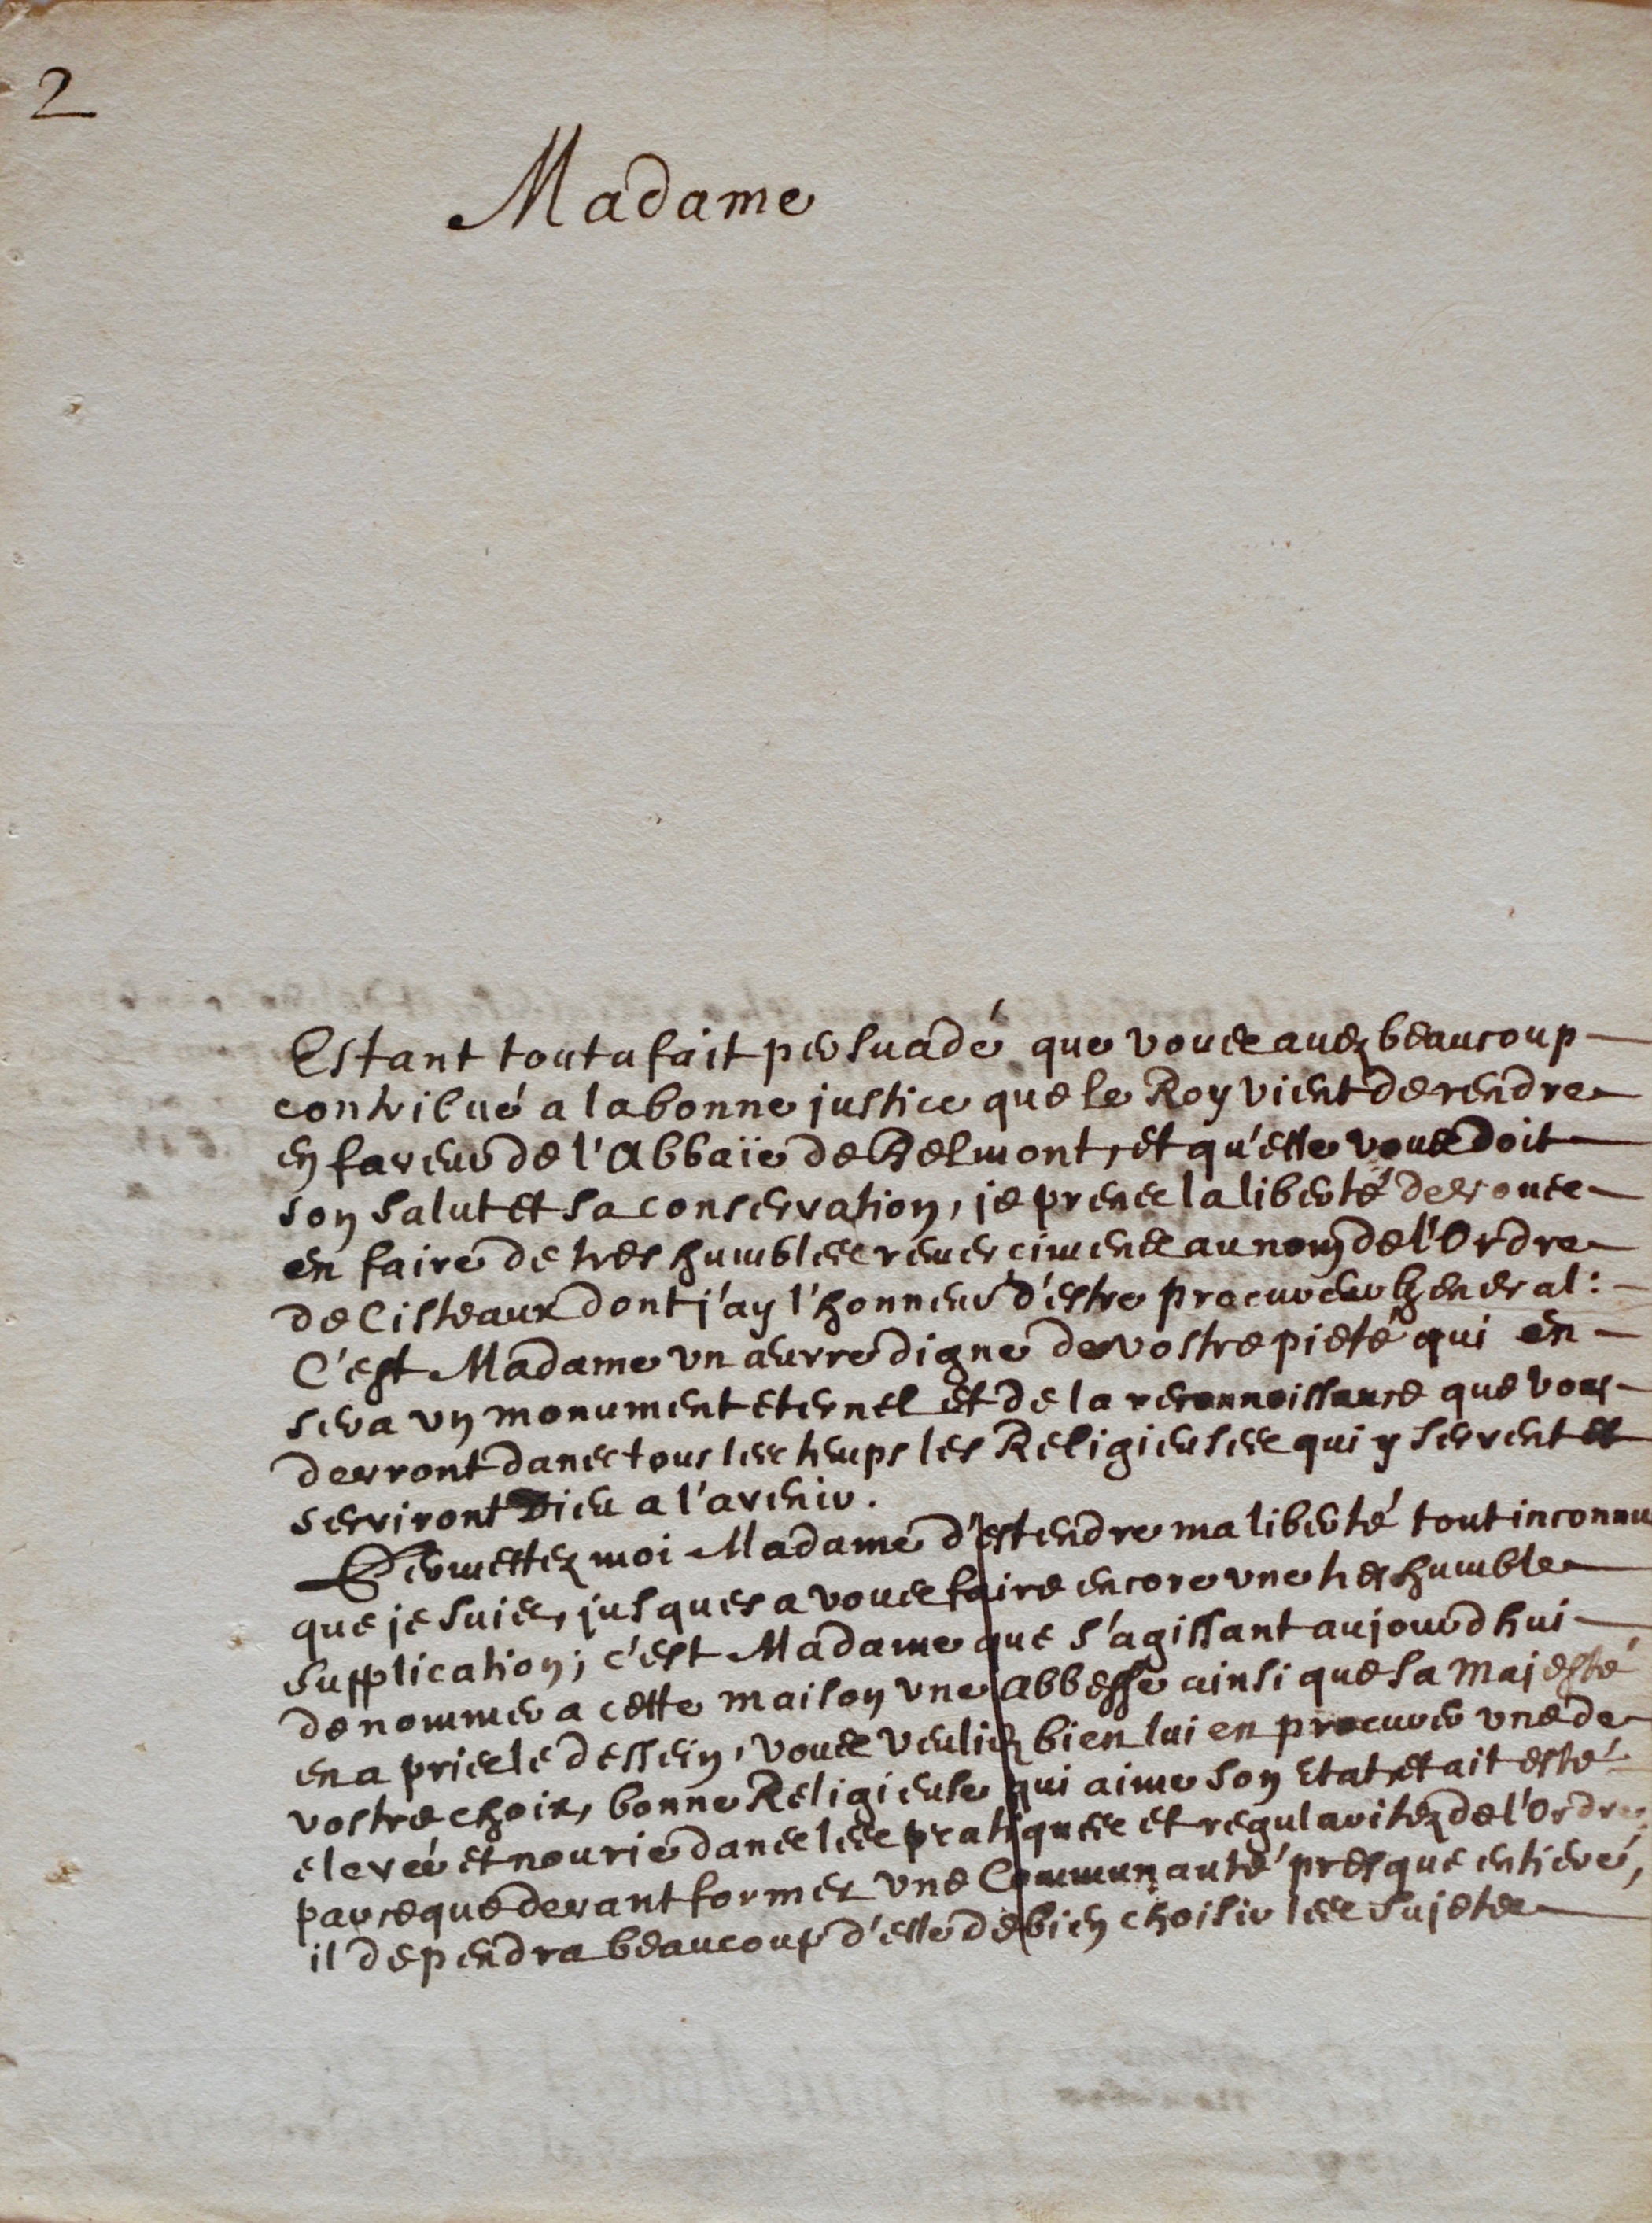 2
Madame
Estant tout a fait persuadé que vous avez beaucoup
contribué a la bonne justice que le Roy vient de rendre
en faveur de l'Abbaïe de Belmont, et qu'elle vous doit
son salut et sa conservation, je prens la liberté de vous
en faire de tres humbles remercimens au nom de l'Ordre
de Cisteaux dont j'ay l'honneur d'estre procureur General :
C'est Madame un œuvre digne de vostre pieté qui en
sera un monument eternel et de la reconnoissance que vous
devront dans tous les temps les Religieuses qui y servent et
serviront Dieu a l'avenir.
Permettez moi Madame d'estendre ma liberté tout inconnu
que je suis, jusques a vous faire encore une tres humble
supplication ; c'est Madame que s'agissant aujourdhui
de nommer a cette maison une Abbesse ainsi que sa Majesté
en a pris le dessein, vous veuliez bien lui en procurer une de
vostre choix, bonne Religieuse qui aime son Etat, et ait esté
elevée et nourie dans les pratiques et regularitez de l'Ordre,
parce que devant former une Communauté presque entiere,
il dependra beaucoup d'elle de bien choisir les sujets